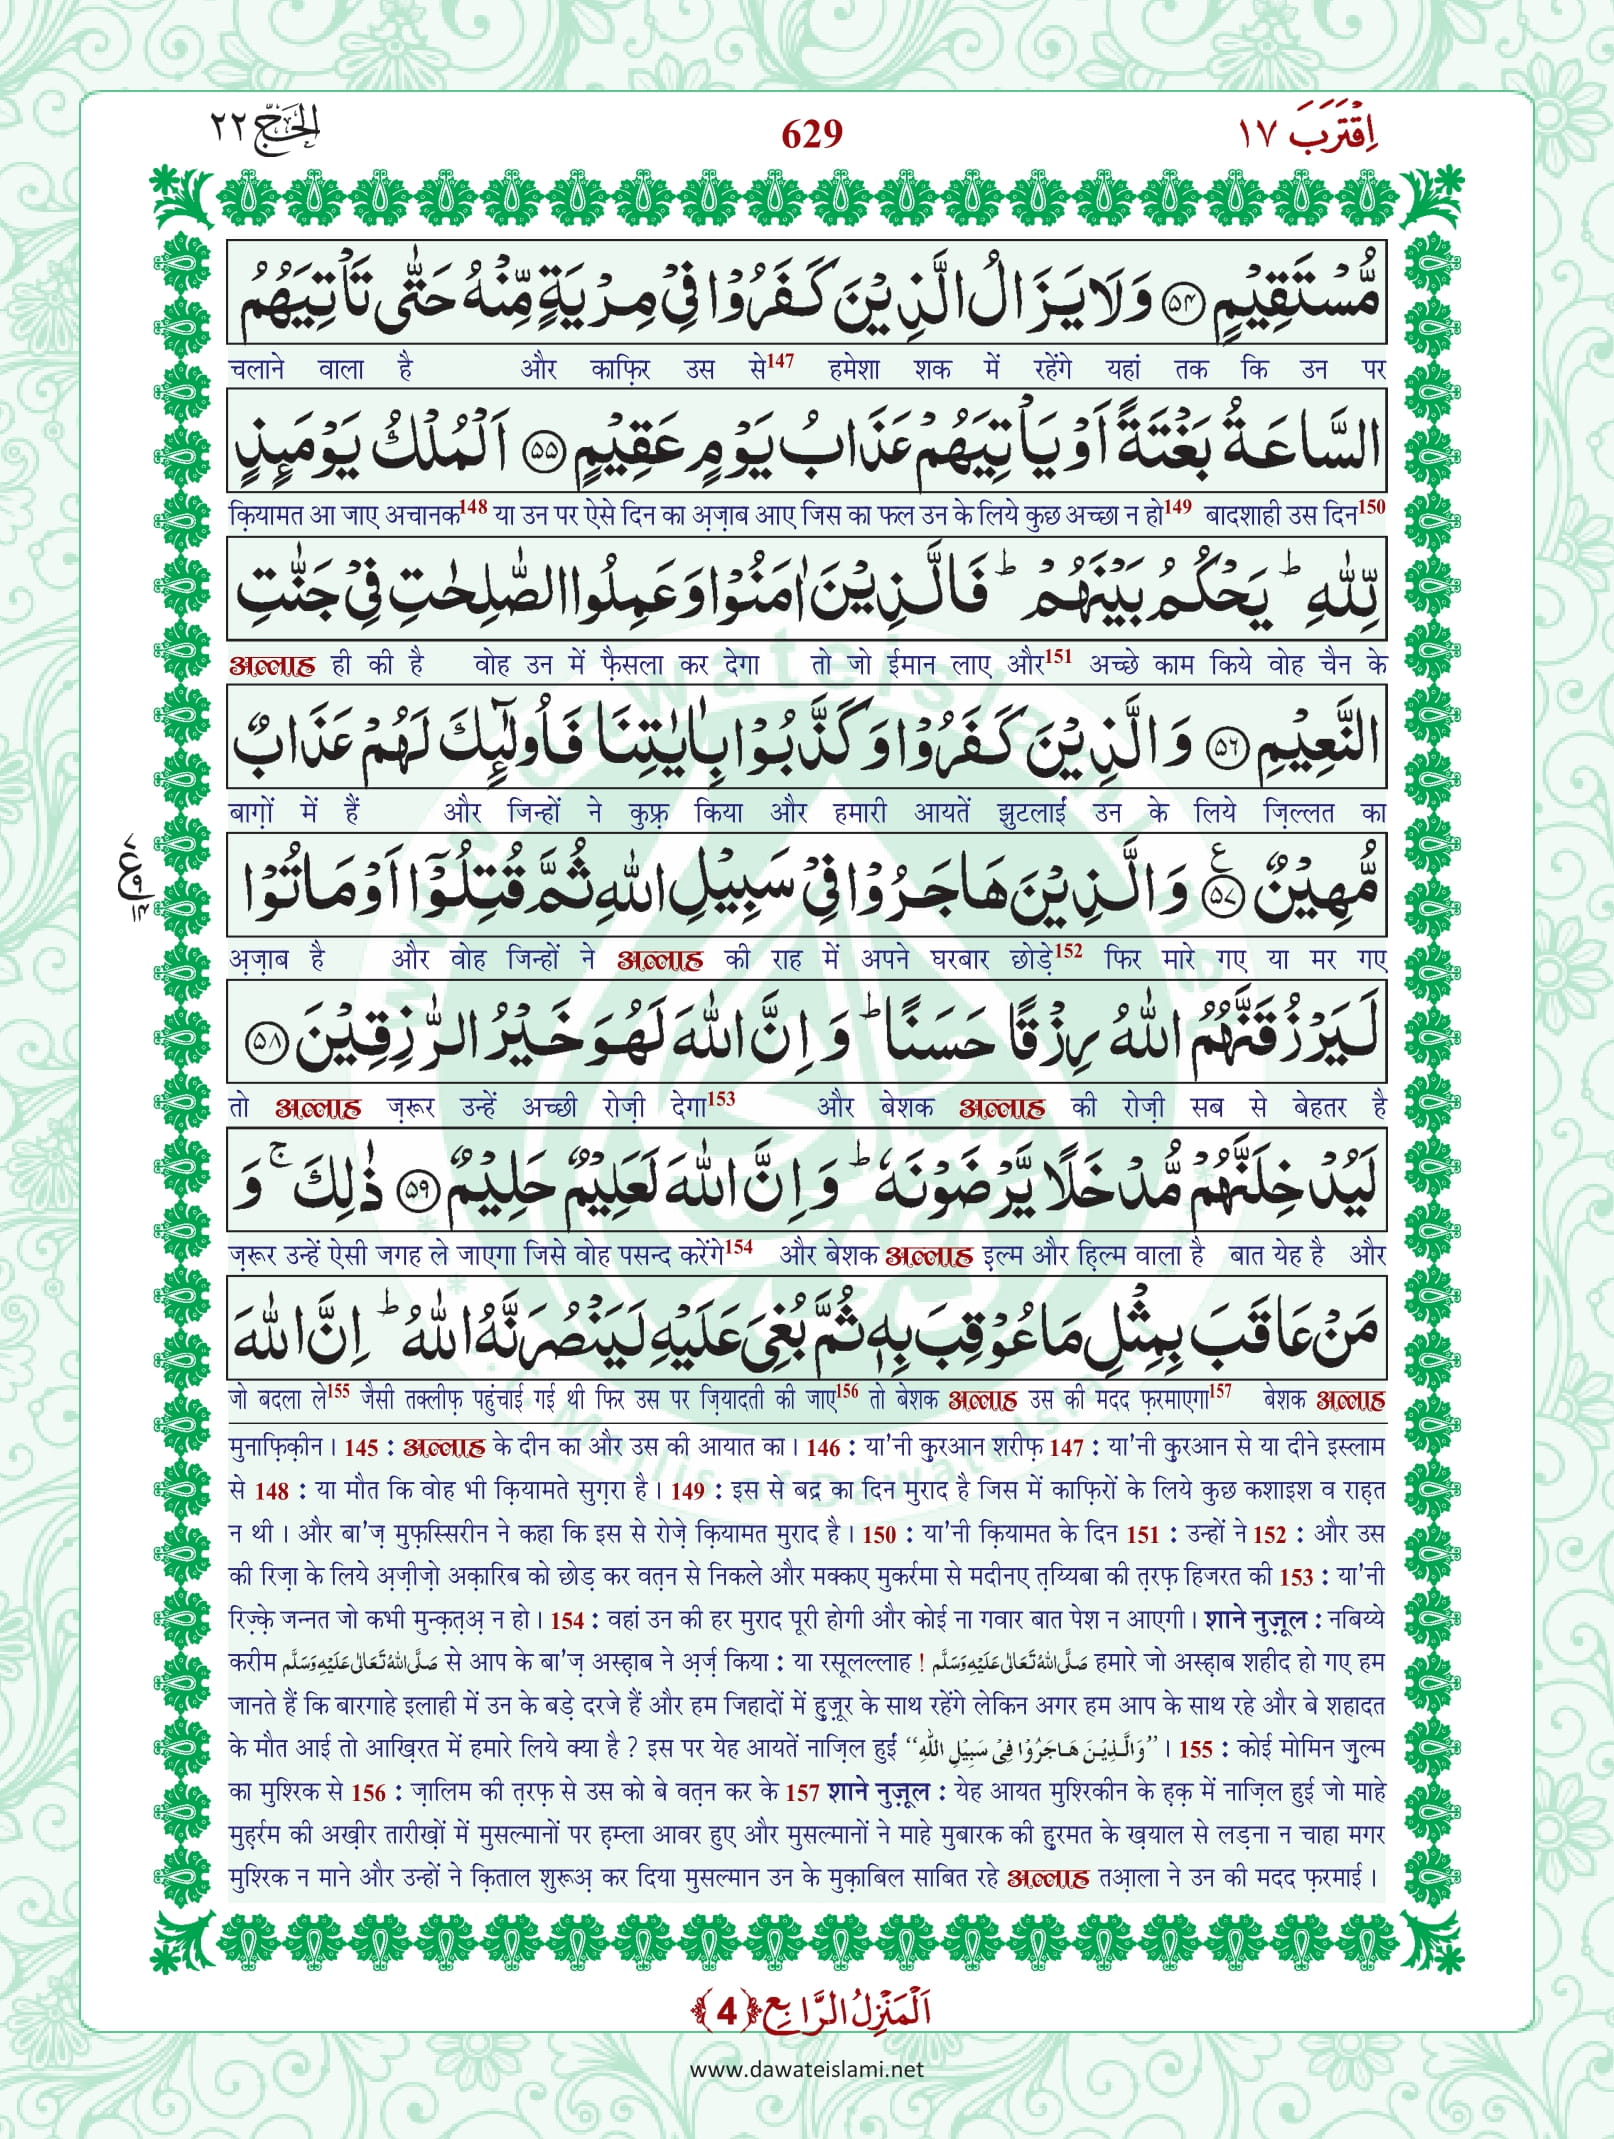 اِقْتَرَبَ ١٧
629
الحَجّ ٢٢
مُّسْتَقِیْمٍ ﴿۵۴﴾ وَلَا یَزَالُ الَّذِیْنَ كَفَرُوْا فِیْ مِرْیَةٍ مِّنْهُ حَتّٰى تَاْتِیَهُمُ
चलाने वाला है और काफ़िर उस से147 हमेशा शक में रहेंगे यहां तक कि उन पर
السَّاعَةُ بَغْتَةً اَوْ یَاْتِیَهُمْ عَذَابُ یَوْمٍ عَقِیْمٍ ﴿۵۵﴾ اَلْمُلْكُ یَوْمَىٕذٍ
क़ियामत आ जाए अचानक148 या उन पर ऐसे दिन का अ़ज़ाब आए जिस का फल उन के लिये कुछ अच्छा न हो149 बादशाही उस दिन150
لِّلّٰهِؕ یَحْكُمُ بَیْنَهُمْؕ فَالَّذِیْنَ اٰمَنُوْا وَ عَمِلُوا الصّٰلِحٰتِ فِیْ جَنّٰتِ
अल्लाह ही की है वोह उन में फ़ैसला कर देगा तो जो ईमान लाए और151 अच्छे काम किये वोह चैन के
النَّعِیْمِ ﴿۵۶﴾ وَ الَّذِیْنَ كَفَرُوْا وَ كَذَّبُوْا بِاٰیٰتِنَا فَاُولٰٓىٕكَ لَهُمْ عَذَابٌ
बाग़ों में हैं और जिन्हों ने कुफ़्र किया और हमारी आयतें झुटलाईं उन के लिये ज़िल्लत का
مُّهِیْنٌ ﴿۵۷﴾ ع وَ الَّذِیْنَ هَاجَرُوْا فِیْ سَبِیْلِ اللّٰهِ ثُمَّ قُتِلُوْۤا اَوْ مَاتُوْا
अ़ज़ाब है और वोह जिन्हों ने अल्लाह की राह में अपने घरबार छोड़े152 फिर मारे गए या मर गए
لَیَرْزُقَنَّهُمُ اللّٰهُ رِزْقًا حَسَنًاؕ وَ اِنَّ اللّٰهَ لَهُوَ خَیْرُ الرّٰزِقِیْنَ ﴿۵۸﴾
तो अल्लाह ज़रूर उन्हें अच्छी रोज़ी देगा153 और बेशक अल्लाह की रोज़ी सब से बेहतर है
لَیُدْخِلَنَّهُمْ مُّدْخَلًا یَّرْضَوْنَهٗؕ وَ اِنَّ اللّٰهَ لَعَلِیْمٌ حَلِیْمٌ ﴿۵۹﴾ ذٰلِكَۚ وَ
ज़रूर उन्हें ऐसी जगह ले जाएगा जिसे वोह पसन्द करेंगे154 और बेशक अल्लाह इ़ल्म और ह़िल्म वाला है बात येह है और
مَنْ عَاقَبَ بِمِثْلِ مَا عُوْقِبَ بِهٖ ثُمَّ بُغِیَ عَلَیْهِ لَیَنْصُرَنَّهُ اللّٰهُؕ اِنَّ اللّٰهَ
जो बदला ले155 जैसी तक्लीफ़ पहुंचाई गई थी फिर उस पर ज़ियादती की जाए156 तो बेशक अल्लाह उस की मदद फ़रमाएगा157 बेशक अल्लाह
मुनाफ़िक़ीन। 145 : अल्लाह के दीन का और उस की आयात का। 146 : या'नी क़ुरआन शरीफ़ 147 : या'नी क़ुरआन से या दीने इस्लाम
से 148 : या मौत कि वोह भी क़ियामते सुग़रा है। 149 : इस से बद्र का दिन मुराद है जिस में काफ़िरों के लिये कुछ कशाइश व राह़त
न थी। और बा'ज़ मुफ़स्सिरीन ने कहा कि इस से रोज़े क़ियामत मुराद है। 150 : या'नी क़ियामत के दिन 151 : उन्हों ने 152 : और उस
की रिज़ा के लिये अ़ज़ीज़ो अक़ारिब को छोड़ कर वत़न से निकले और मक्कए मुकर्रमा से मदीनए त़य्यिबा की त़रफ़ हिजरत की 153 : या'नी
रिज़्क़े जन्नत जो कभी मुन्क़त़अ़ न हो। 154 : वहां उन की हर मुराद पूरी होगी और कोई ना गवार बात पेश न आएगी। शाने नुज़ूल : नबिय्ये
करीम صَلَّى اللهُ تَعَالٰى عَلَيْهِ وَسَلَّم से आप के बा'ज़ अस्ह़ाब ने अ़र्ज़ किया : या रसूलल्लाह ! صَلَّى اللهُ تَعَالٰى عَلَيْهِ وَسَلَّم हमारे जो अस्ह़ाब शहीद हो गए हम
जानते हैं कि बारगाहे इलाही में उन के बड़े दरजे हैं और हम जिहादों में हुज़ूर के साथ रहेंगे लेकिन अगर हम आप के साथ रहे और बे शहादत
के मौत आई तो आख़िरत में हमारे लिये क्या है ? इस पर येह आयतें नाज़िल हुईं ''وَالَّذِیْنَ هَاجَرُوْا فِیْ سَبِیْلِ اللّٰهِ''। 155 : कोई मोमिन ज़ुल्म
का मुश्रिक से 156 : ज़ालिम की त़रफ़ से उस को बे वत़न कर के 157 शाने नुज़ूल : येह आयत मुश्रिकीन के ह़क़ में नाज़िल हुई जो माहे
मुह़र्रम की अख़ीर तारीख़ों में मुसल्मानों पर ह़म्ला आवर हुए और मुसल्मानों ने माहे मुबारक की हुरमत के ख़याल से लड़ना न चाहा मगर
मुश्रिक न माने और उन्हों ने क़िताल शुरूअ़ कर दिया मुसल्मान उन के मुक़ाबिल साबित रहे अल्लाह तआ़ला ने उन की मदद फ़रमाई।
اَلْمَنْزِلُ الرَّابِع ﴿4﴾
www.dawateislami.net